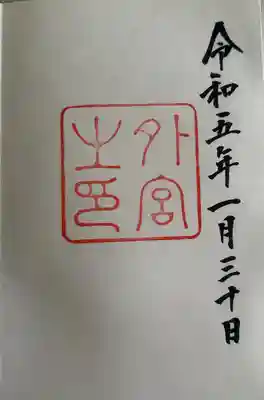 令和五年一月三十日
外宮
之印